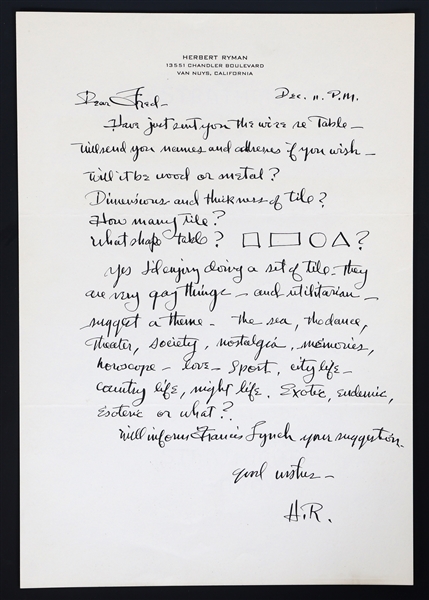 HERBERT RYMAN
13551 CHANDLER BOULEVARD
VAN NUYS, CALIFORNIA
Dec. 11. P.M.
Dear Fred—
Have just sent you the wire re Table—
will send you names and adresses if you wish—
Will it be wood or metal?
Dimensions and thickness of tile?
How many tile?
What shape table? ?
Yes I'd enjoy doing a set of tile—they
are very gay things—and utilitarian—
suggest a theme. The sea, the dance,
theater, society, nostalgia, memories,
horoscope—love—sport, city life—
country life, night life. Exotic, endemic,
Esoteric or what?
Will inform Francis Lynch your suggestion.
good wishes—
H.R.